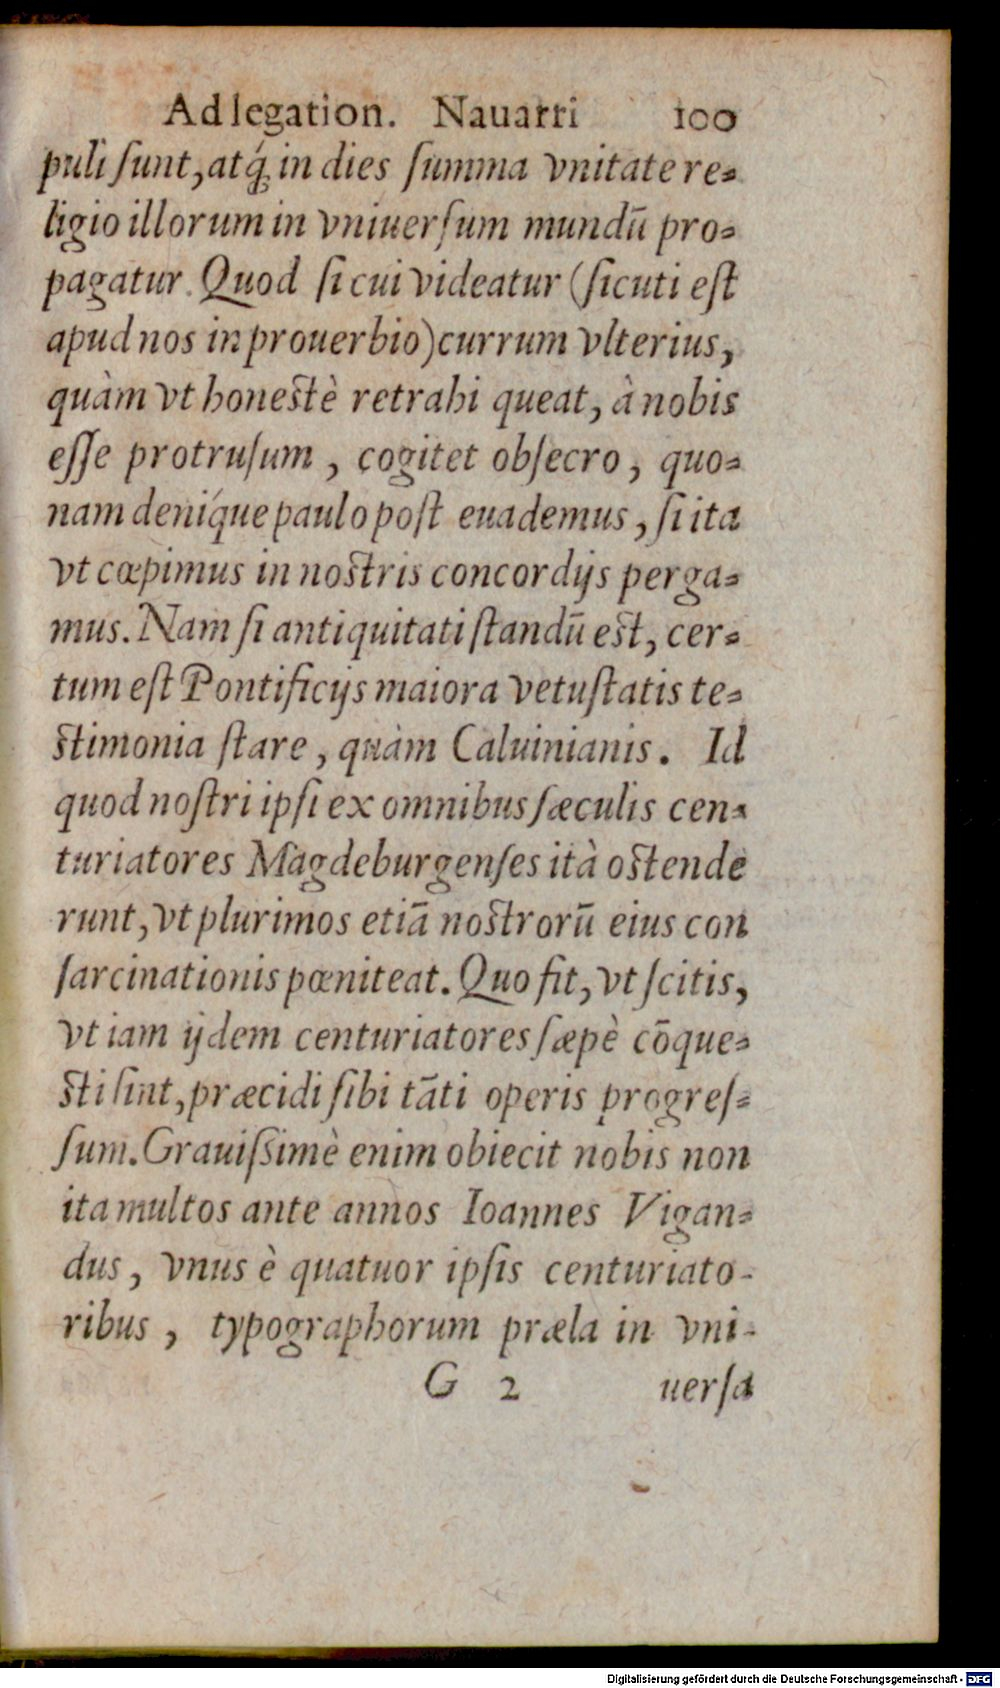 Ad legation. Nauarri 100
puli ſunt, atq́; in dies ſumma vnitate re-
ligio illorum in vniuerſum mundū pro-
pagatur. Quod ſi cui videatur (ſicuti eſt
apud nos in prouerbio) currum vlterius,
quàm vt honeſtè retrahi queat, à nobis
eſſe protruſum, cogitet obſecro, quo-
nam deniq́ue paulo poſt euademus, ſi ita
vt cœpimus in noſtris concordijs perga-
mus. Nam ſi antiquitati ſtandū eſt, cer-
tum eſt Pontificijs maiora vetuſtatis te-
ſtimonia ſtare, quàm Caluinianis. Id
quod noſtri ipſi ex omnibus ſæculis cen-
turiatores Magdeburgenſes ità oſtende
runt, vt plurimos etiā noſtrorū eius con
ſarcinationis pœniteat. Quo fit, vt ſcitis,
vt iam ijdem centuriatores ſæpè cōque-
ſti ſint, præcidi ſibi tāti operis progreſ-
ſum. Grauiſſimè enim obiecit nobis non
ita multos ante annos Ioannes Vigan-
dus, vnus è quatuor ipſis centuriato-
ribus, typographorum præla in vni-
G 2 uerſa
Digitalisierung gefördert durch die Deutsche Forschungsgemeinschaft - DFG